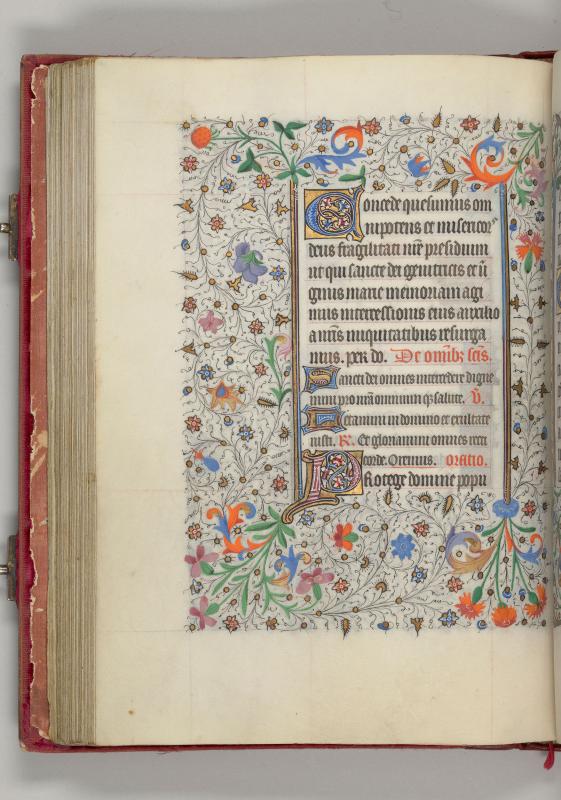 Concede quesumus om
nipotens et misericor
deus fragilitati nr̃e presidium
ut qui sancte dei genitricis et ũ
ginis marie memoriam agi
mus intercessionis eius auxilio
a nr̃is iniquitatibus resurga
mus. per do. De om̃ibȝ sc̃is.
Sancti dei omnes intercedere digne
mini pro nr̃a omnium qȝ salute. V̄.
Letamini in domino et exultate
iusti. R̄. Et gloriamini omnes recti
corde. Oremus. oratio.
Protege domine popu